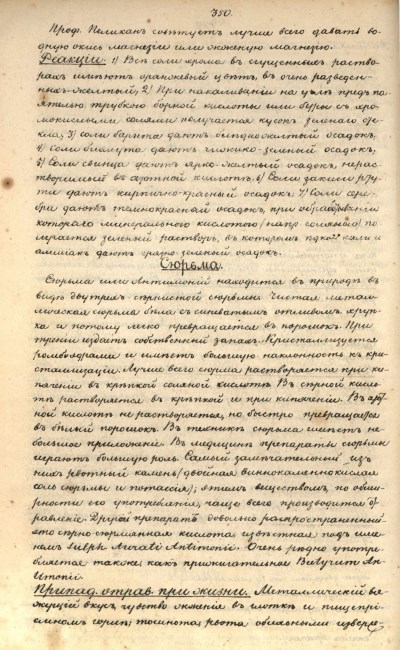 350.
Проф. Пеликан советует лучше всего давать во-
дную окись магнезии или жженую магнезию.
Реакціи. 1) Все соли хрома въ сгущенныхъ раство-
рахъ имѣютъ оранжевый цвѣтъ, въ очень разведен-
ныхъ-желтый; 2) При накаливаніи на углѣ предъ па-
яльною трубкою борной кислоты или буры съ хро-
мокислыми солями получается кусок зеленаго сте-
кла; 3) соли барита даютъ блѣдножелтый осадокъ,
4) соли висмута даютъ зеленый осадокъ,
5) Соли свинца даютъ ярко-желтый осадокъ, нерас-
творимый въ азотной кислотѣ. 6) Соли закиси рту-
ти даютъ кирпично-красный осадокъ. 7) Соли сере-
бра даютъ темнокрасный осадокъ, при обрабатываніи
котораго минеральною кислотою (напр. соляною) по-
лучается зеленый растворъ, въ которомъ кали и
амміакъ даютъ осадокъ.
Сюрьма.
Сюрьма или Антимоній находится въ природѣ въ
видѣ сѣрнистой сюрьмы. Чистая метал-
лическая сюрьма бѣла съ синеватымъ отливомъ, хруп-
ка и потому легко превращается въ порошокъ. При
треніи издаетъ собственный запахъ. Кристаллизуется
ромбоэдрами и имѣетъ большую наклонность къ кри-
сталлизаціи. Лучше всего сюрьма растворяется при ки-
пяченіи въ крѣпкой соляной кислотѣ. Въ сѣрной кисло-
тѣ растворяется въ крѣпкой и при кипяченіи. Въ азот-
ной кислотѣ не растворяется, но быстро превращается
въ бѣлый порошокъ. Въ техникѣ сюрьма имѣетъ не-
большое приложеніе. Въ медицинѣ препараты сюрьмы
играютъ большую роль. Самый замѣчательный изъ
нихъ рвотный камень (двойная виннокаменнокислая
соль сюрьмы и потассія); этимъ веществомъ, по обши-
рности его употребленія, чаще всего производится от-
равленіе. Другой препаратъ довольно распространенный-
это сѣрно-сюрмянная кислота извѣстная подъ име-
немъ Sulph. Aurati Antimonii. Очень рѣдко употре-
бляется также, какъ прижигательное Butyrum An-
timonii.
Припад. отрав. при жизни. Металлическій вя-
жущій вкусъ, чувство жженія въ глоткѣ и пищепрі-
емномъ горлѣ; тошнота, рвота обильными изверже-